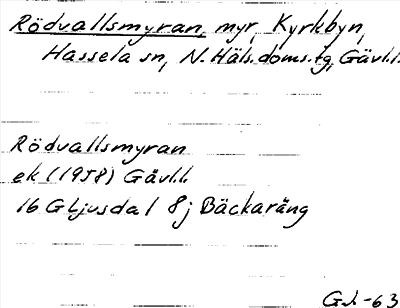 Rödvallsmyran, myr, Kyrkbyn,
Hassela sn, N. Häls. doms. tg, Gävl.l.
Rödvallsmyran
ek (1958) Gävl.l.
16 G Ljusdal 8j Bäckaräng
G.J. -63